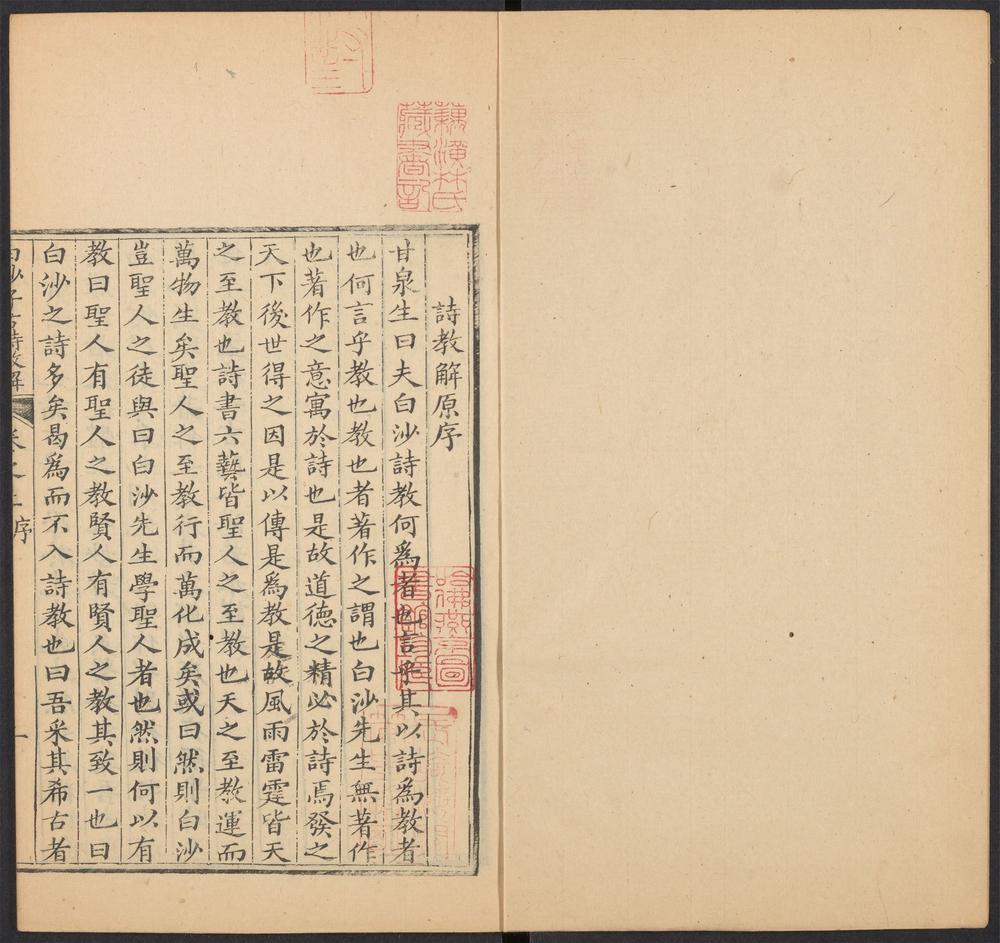 詩教解原序
甘泉生曰夫白沙詩教何為者也言乎其以詩為教者
也何言乎教也教也者著作之謂也白沙先生無著作
也著作之意寓於詩也是故道德之精必於詩焉發之
天下後世得之因是以傳是為教是故風雨雷霆皆天
之至教也詩書六藝皆聖人之至教也天之至教運而
萬物生矣聖人之至教行而萬化成矣或曰然則白沙
豈聖人之徒與曰白沙先生學聖人者也然則何以有
教曰聖人有聖人之教賢人有賢人之教其致一也曰
白沙之詩多矣曷為而不入詩教也曰吾采其希古者
白沙子古詩教解 卷之上 序 一
藕潢林氏藏書記
哈佛燕京圖書館珍藏